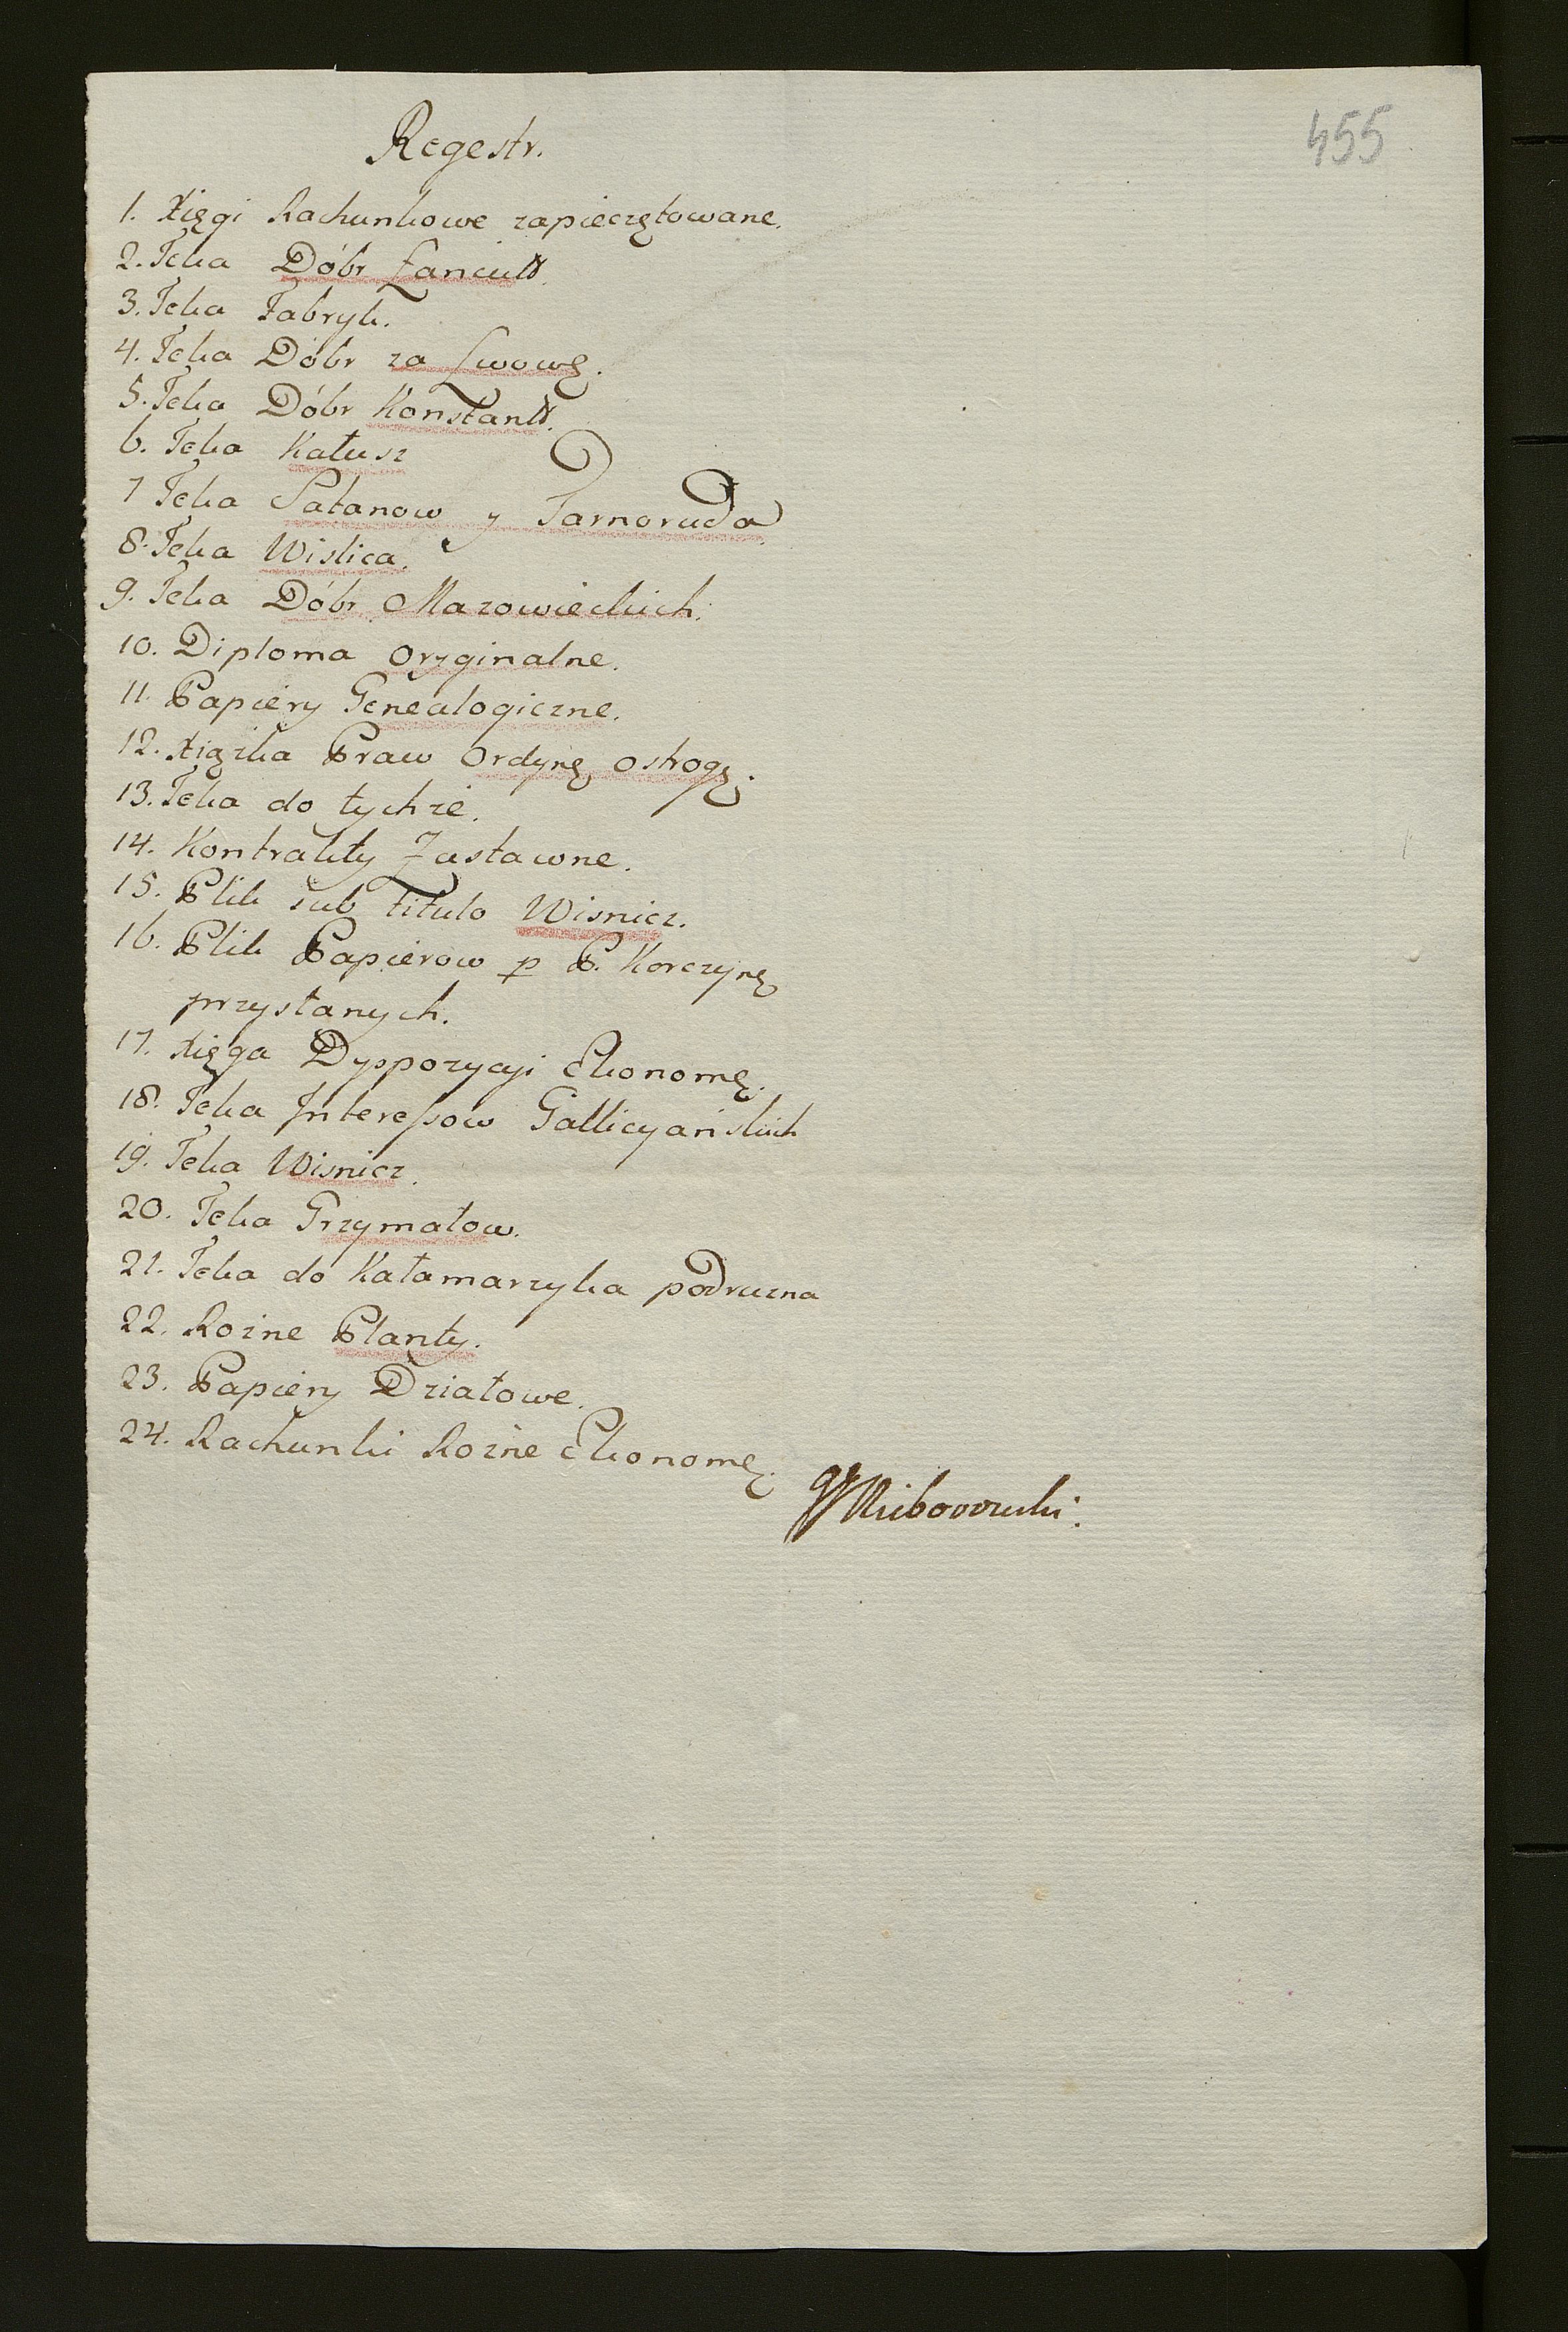 455
Regestr.
1. Xięgi Rachunkowe zapieczętowane.
2. Teka Dóbr Łancutt.
3. Teka Fabryk.
4. Teka Dóbr za Lwowę.
5. Teka Dóbr Konstantt.
6. Teka Kałusz
7 Teka Satanow y Tarnoruda
8. Teka Wislica.
9. Teka Dóbr Mazowieckich.
10. Diploma oryginalne.
11. Papiery Genealogiczne.
12. Xiązka Praw Ordynę ostrogę.
13. Teka do tychże.
14. Kontrakty Zastawne.
15. Plik sub titulo Wisnicz.
16. Plik Papierow p P. Korczynę
przysłanych.
17. Xięga Dyspozycji Ekonomę.
18. Teka Interessow Gallicyańskich
19. Teka Wisnicz.
20. Teka Grzymałow.
21. Teka do Kałamarzyka podruzna
22. Rożne Planty.
23. Papiery Działowe.
24. Rachunki Rożne Ekonomę.